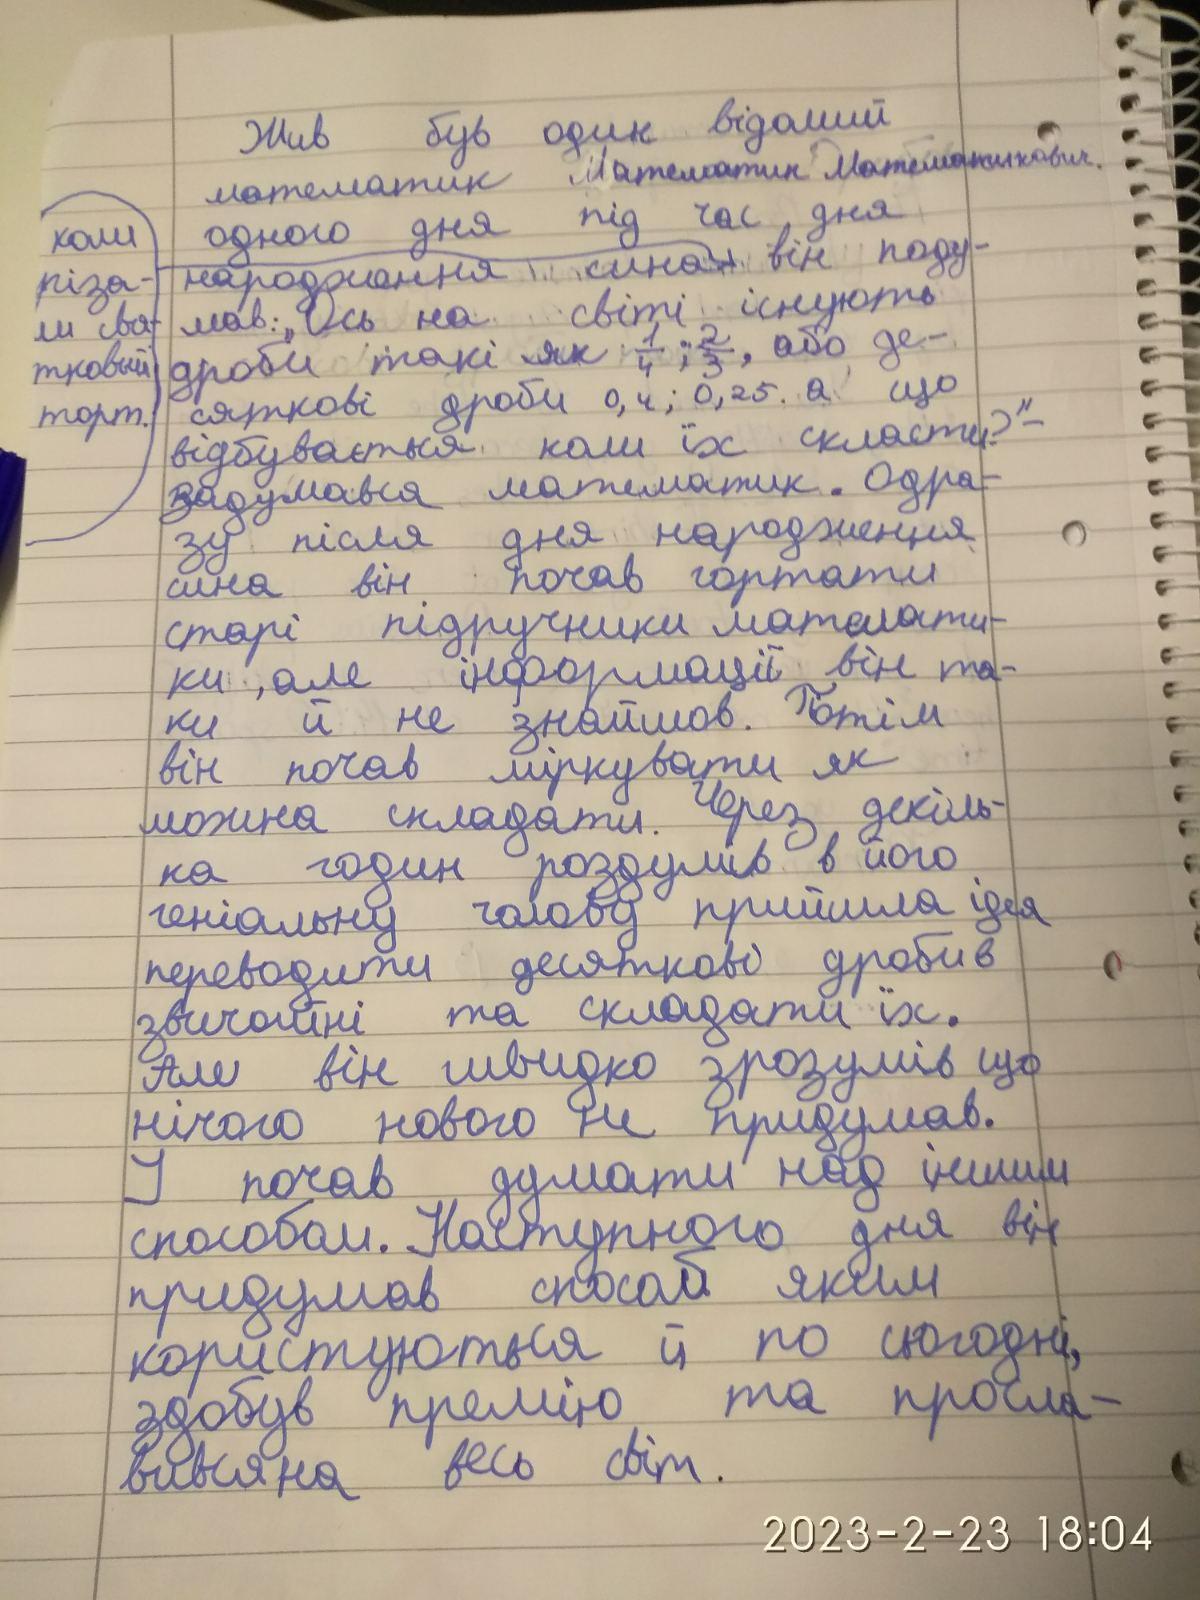 Жив був один відомий
математик Математик Математикович.
одного дня під час дня
народження сина він поду-
коли
різа-
ли свя-
тковый
торт.
мав: „Ось на світі існують
дроби такі як 1/4; 2/3, або де-
сяткові дроби 0,4; 0,25. а що
відбувається коли їх скласти?"-
задумався математик. Одра-
зу після дня народження
сина він почав гортати
старі підручники математи-
ки, але інформації він та-
ки й не знайшов. Потім
він почав міркувати як
можна складати. Через декіль-
ка годин роздумів в його
геніальну голову прийшла ідея
переводити десяткові дроби в
звичайні та складати їх.
Але він швидко зрозумів що
нічого нового не придумав.
І почав думати над іншим
способом. Наступного дня він
придумав спосіб яким
користуються й по сьогодні,
здобув премію та просла-
вився на весь світ.
2023-2-23 18:04